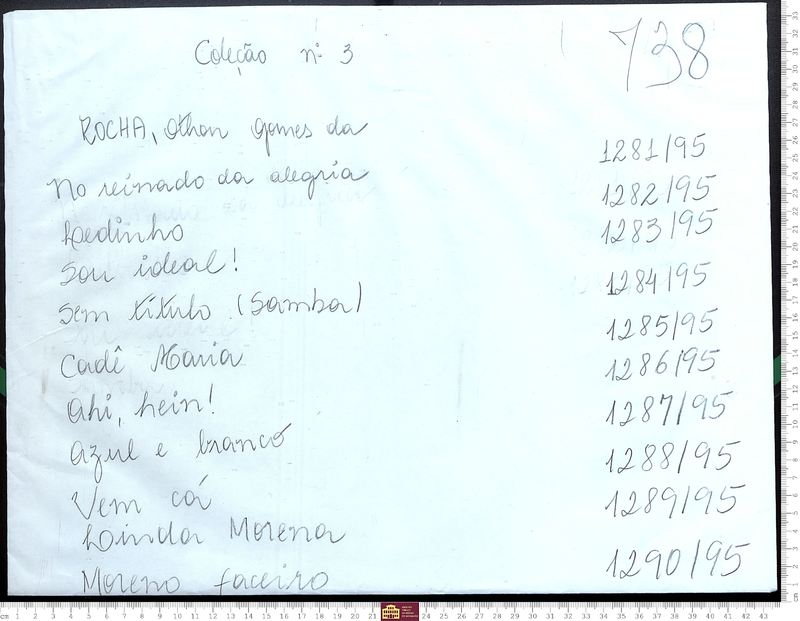 Coleção nº 3
738
ROCHA, Othon Gomes da
1281/95
No reinado da alegria
1282/95
Ledinho
1283/95
Sou ideal!
1284/95
Sem título (Samba)
1285/95
Cadê Maria
1286/95
Ahi, hein!
1287/95
Azul e branco
1288/95
Vem cá
1289/95
Linda Morena
1290/95
Moreno faceiro